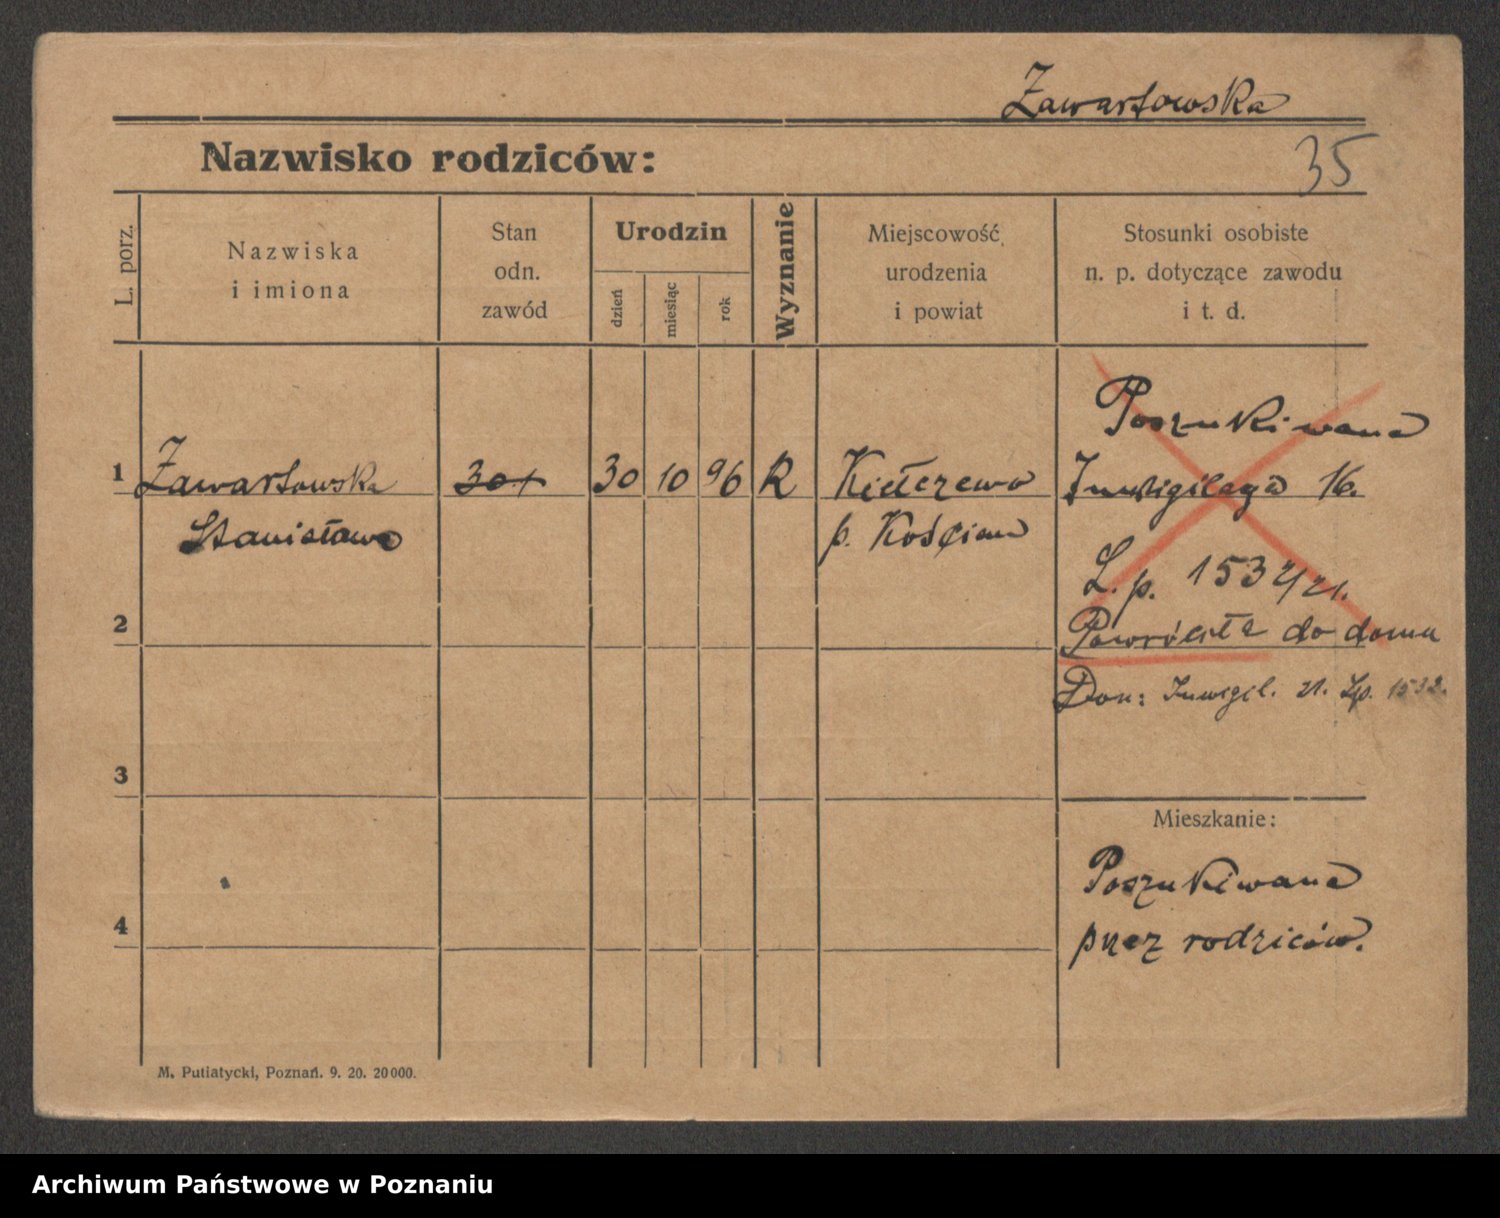 Zawartowska
Nazwisko rodziców:
35
L. porz.
Nazwiska
i imiona
Stan
odn.
zawód
Urodzin
dzień
miesiąc
rok
Wyznanie
Miejscowość
urodzenia
i powiat
Stosunki osobiste
n. p. dotyczące zawodu
i t. d.
Poszukiwana
1 Zawartowska 30 10 96 R Kiełczewo Inwigilacja 16.
Stanisława p. Kościan
L. p. 1532/21.
2 Powróciła do domu
Don: Inwigil. 21. Lp. 1532.
3
Mieszkanie:
Poszukiwana
4 przez rodziców.
M. Putiatycki, Poznań. 9. 20. 20000.
Archiwum Państwowe w Poznaniu